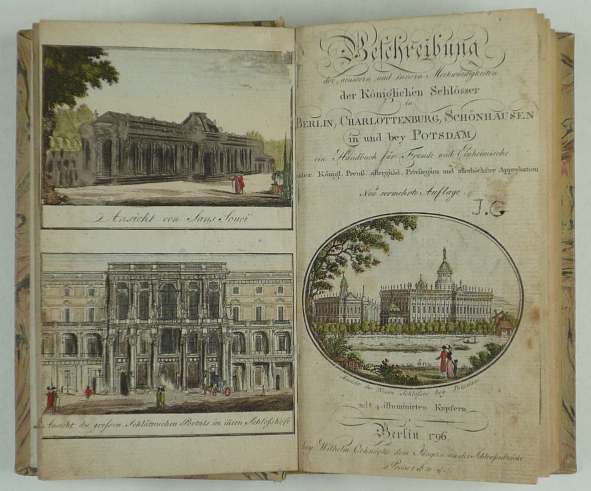 Ansicht von Sans Souci
Ansicht des grossen Schlüterschen Portals in ihren Schloßhofe
Beschreibung
der äussern und innern Merkwürdigkeiten
der Königlichen Schlösser
in
BERLIN, CHARLOTTENBURG, SCHÖNHAUSEN
in und bey POTSDAM,
ein Handbuch für Fremde und Einheimische
Königl. Preuß. allergnäd. Privilegium und allerhöchster Approbation
Neue vermehrte Auflage
J.C
Ansicht des Neuen Schlosses bey Potsdam
mit 4 illuminirten Kupfern
Berlin 1796.
bey Wilhelm Oehmigke dem Jüngern an der Schleusenbrücke